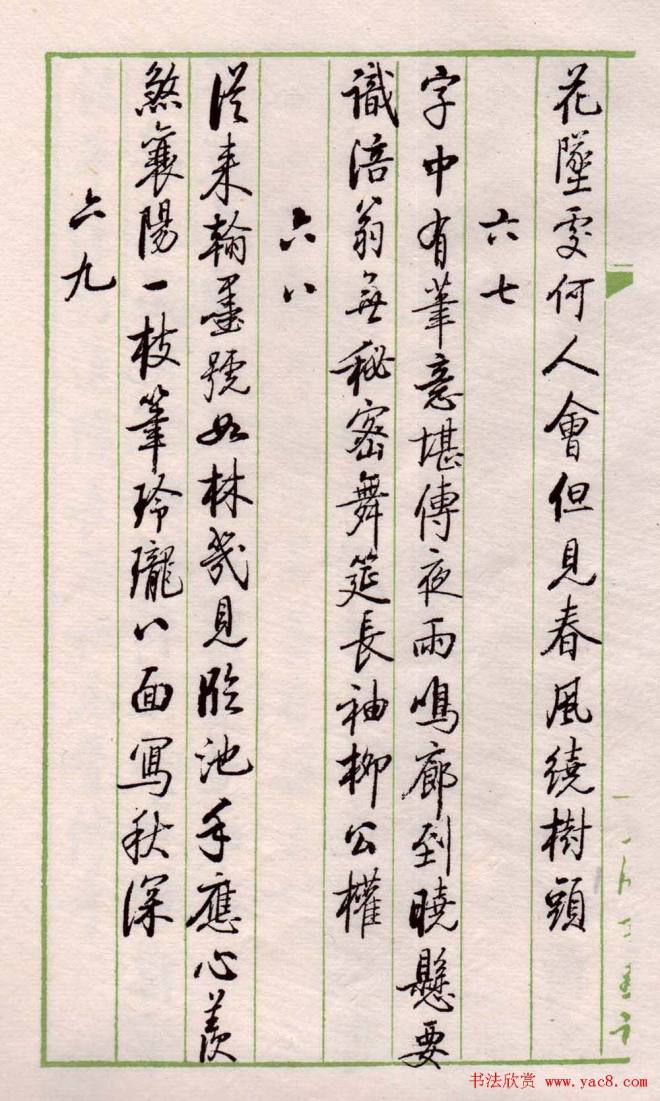 花墜處何人會但見春風繞樹頭
六七
字中有筆意堪傳夜雨鳴廊到曉懸要
識涪翁無秘密舞筵長袖柳公權
六八
從來翰墨號如林幾見臨池手應心羨
煞襄陽一枝筆玲瓏八面寫秋深
六九
书法欣赏 www.yac8.com